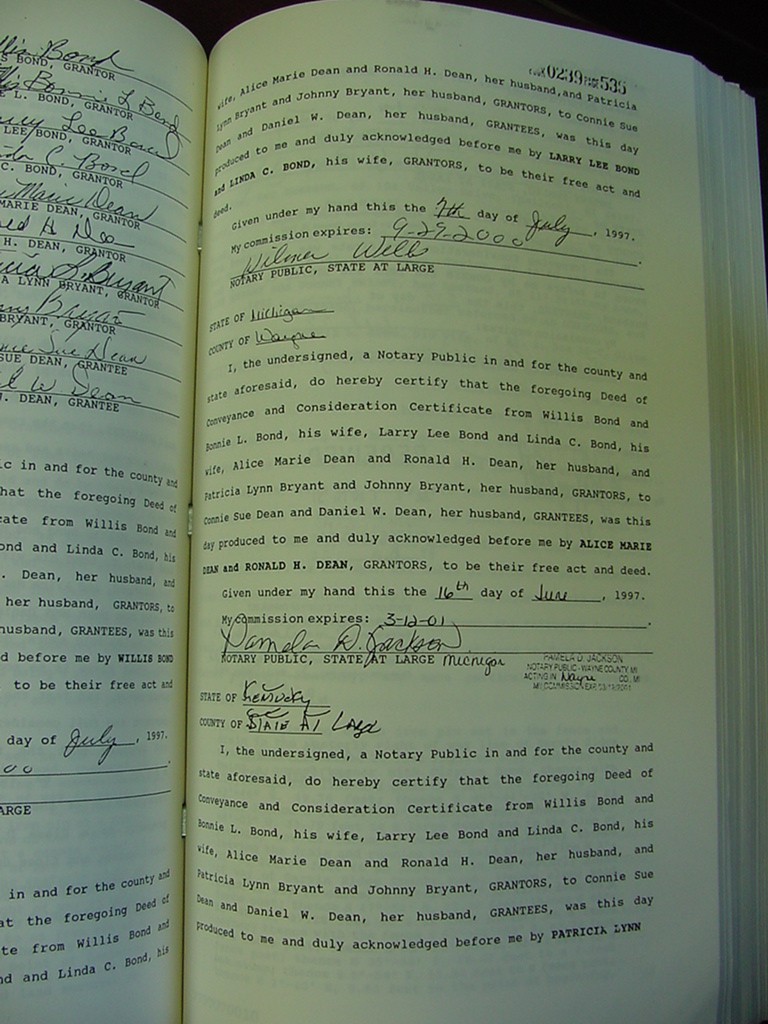 llis Bond
S BOND, GRANTOR
E L. BOND, GRANTOR
LEE BOND, GRANTOR
C. BOND, GRANTOR
MARIE DEAN, GRANTOR
H. DEAN, GRANTOR
A LYNN BRYANT, GRANTOR
BRYANT, GRANTOR
SUE DEAN, GRANTEE
. DEAN, GRANTEE
c in and for the county and
hat the foregoing Deed of
cate from Willis Bond and
ond and Linda C. Bond, his
. Dean, her husband, and
her husband, GRANTORS, to
husband, GRANTEES, was this
d before me by WILLIS BOND
to be their free act and
day of July, 1997.
00
ARGE
in and for the county and
at the foregoing Deed of
te from Willis Bond and
nd and Linda C. Bond, his
0239 536
wife, Alice Marie Dean and Ronald H. Dean, her husband, and Patricia
Lynn Bryant and Johnny Bryant, her husband, GRANTORS, to Connie Sue
Dean and Daniel W. Dean, her husband, GRANTEES, was this day
produced to me and duly acknowledged before me by LARRY LEE BOND
and LINDA C. BOND, his wife, GRANTORS, to be their free act and
deed.
Given under my hand this the 7th day of July, 1997.
My commission expires: 9-29-2000.
Wilma Wells
NOTARY PUBLIC, STATE AT LARGE
STATE OF Michigan
COUNTY OF Wayne
I, the undersigned, a Notary Public in and for the county and
state aforesaid, do hereby certify that the foregoing Deed of
Conveyance and Consideration Certificate from Willis Bond and
Bonnie L. Bond, his wife, Larry Lee Bond and Linda C. Bond, his
wife, Alice Marie Dean and Ronald H. Dean, her husband, and
Patricia Lynn Bryant and Johnny Bryant, her husband, GRANTORS, to
Connie Sue Dean and Daniel W. Dean, her husband, GRANTEES, was this
day produced to me and duly acknowledged before me by ALICE MARIE
DEAN and RONALD H. DEAN, GRANTORS, to be their free act and deed.
Given under my hand this the 16th day of June, 1997.
My commission expires: 3-12-01.
Pamela D. Jackson
NOTARY PUBLIC, STATE AT LARGE Michigan
PAMELA D. JACKSON
NOTARY PUBLIC - WAYNE COUNTY, MI
ACTING IN Wayne CO., MI
MY COMMISSION EXP.
STATE OF Kentucky
COUNTY OF STATE AT Large
I, the undersigned, a Notary Public in and for the county and
state aforesaid, do hereby certify that the foregoing Deed of
Conveyance and Consideration Certificate from Willis Bond and
Bonnie L. Bond, his wife, Larry Lee Bond and Linda C. Bond, his
wife, Alice Marie Dean and Ronald H. Dean, her husband, and
Patricia Lynn Bryant and Johnny Bryant, GRANTORS, to Connie Sue
Dean and Daniel W. Dean, her husband, GRANTEES, was this day
produced to me and duly acknowledged before me by PATRICIA LYNN